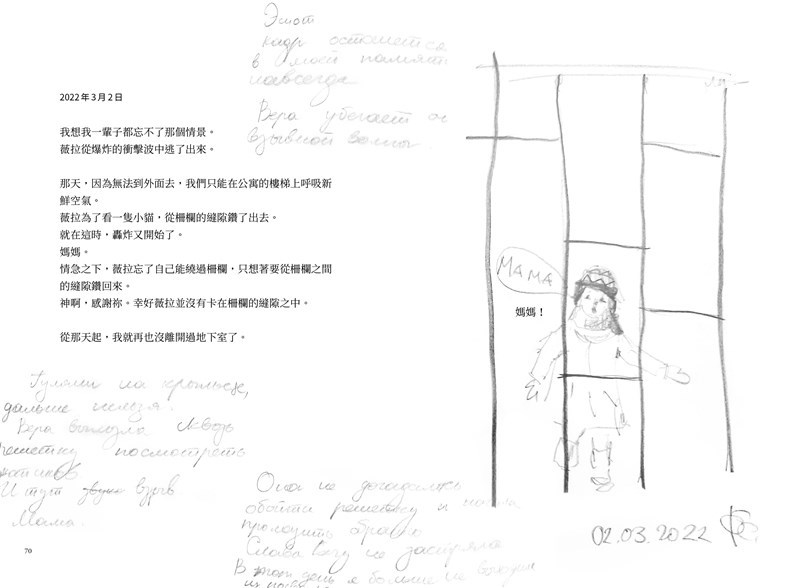 Этот
кадр останется
в моей памяти
навсегда
Вера убегает от
взрывной волны.
2022 年 3 月 2 日
我想我一輩子都忘不了那個情景。
薇拉從爆炸的衝擊波中逃了出來。
那天，因為無法到外面去，我們只能在公寓的樓梯上呼吸新
鮮空氣。
薇拉為了看一隻小貓，從柵欄的縫隙鑽了出去。
就在這時，轟炸又開始了。
媽媽。
情急之下，薇拉忘了自己能繞過柵欄，只想著要從柵欄之間
的縫隙鑽回來。
神啊，感謝祢。幸好薇拉並沒有卡在柵欄的縫隙之中。
從那天起，我就再也沒離開過地下室了。
МАМА
媽媽！
Гуляли на крыльце,
дальше нельзя.
Вера вылезла сквозь
решетку посмотреть
котиков
И тут взрыв
Мама.
Она не догадалась
обойти решетку и начала
пролазить обратно
Слава Богу не застряла
В этот день я больше не выходил
02.03.2022
70